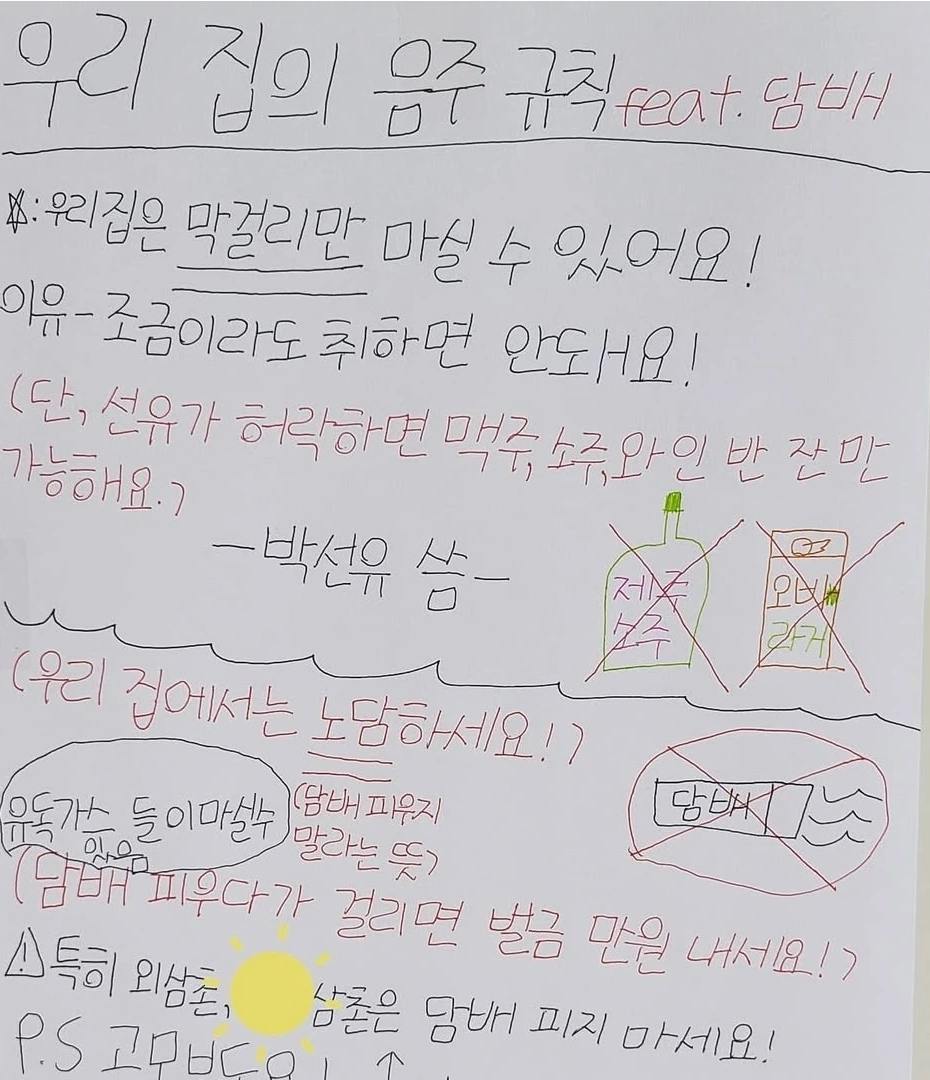 우리 집의 음주 규칙 feat. 담배
우리집은 막걸리만 마실 수 있어요!
이유 - 조금이라도 취하면 안돼요!
(단, 선유가 허락하면 맥주, 소주, 와인 반 잔만
가능해요.)
-박선유 씀-
제주
소주
오비
라거
(우리 집에서는 노담하세요!)
(담배 피우지
말라는 뜻)
유독가스 들이마실수
있음
담배
(담배 피우다가 걸리면 벌금 만원 내세요!)
특히 외삼촌, 삼촌은 담배 피지 마세요!
P.S